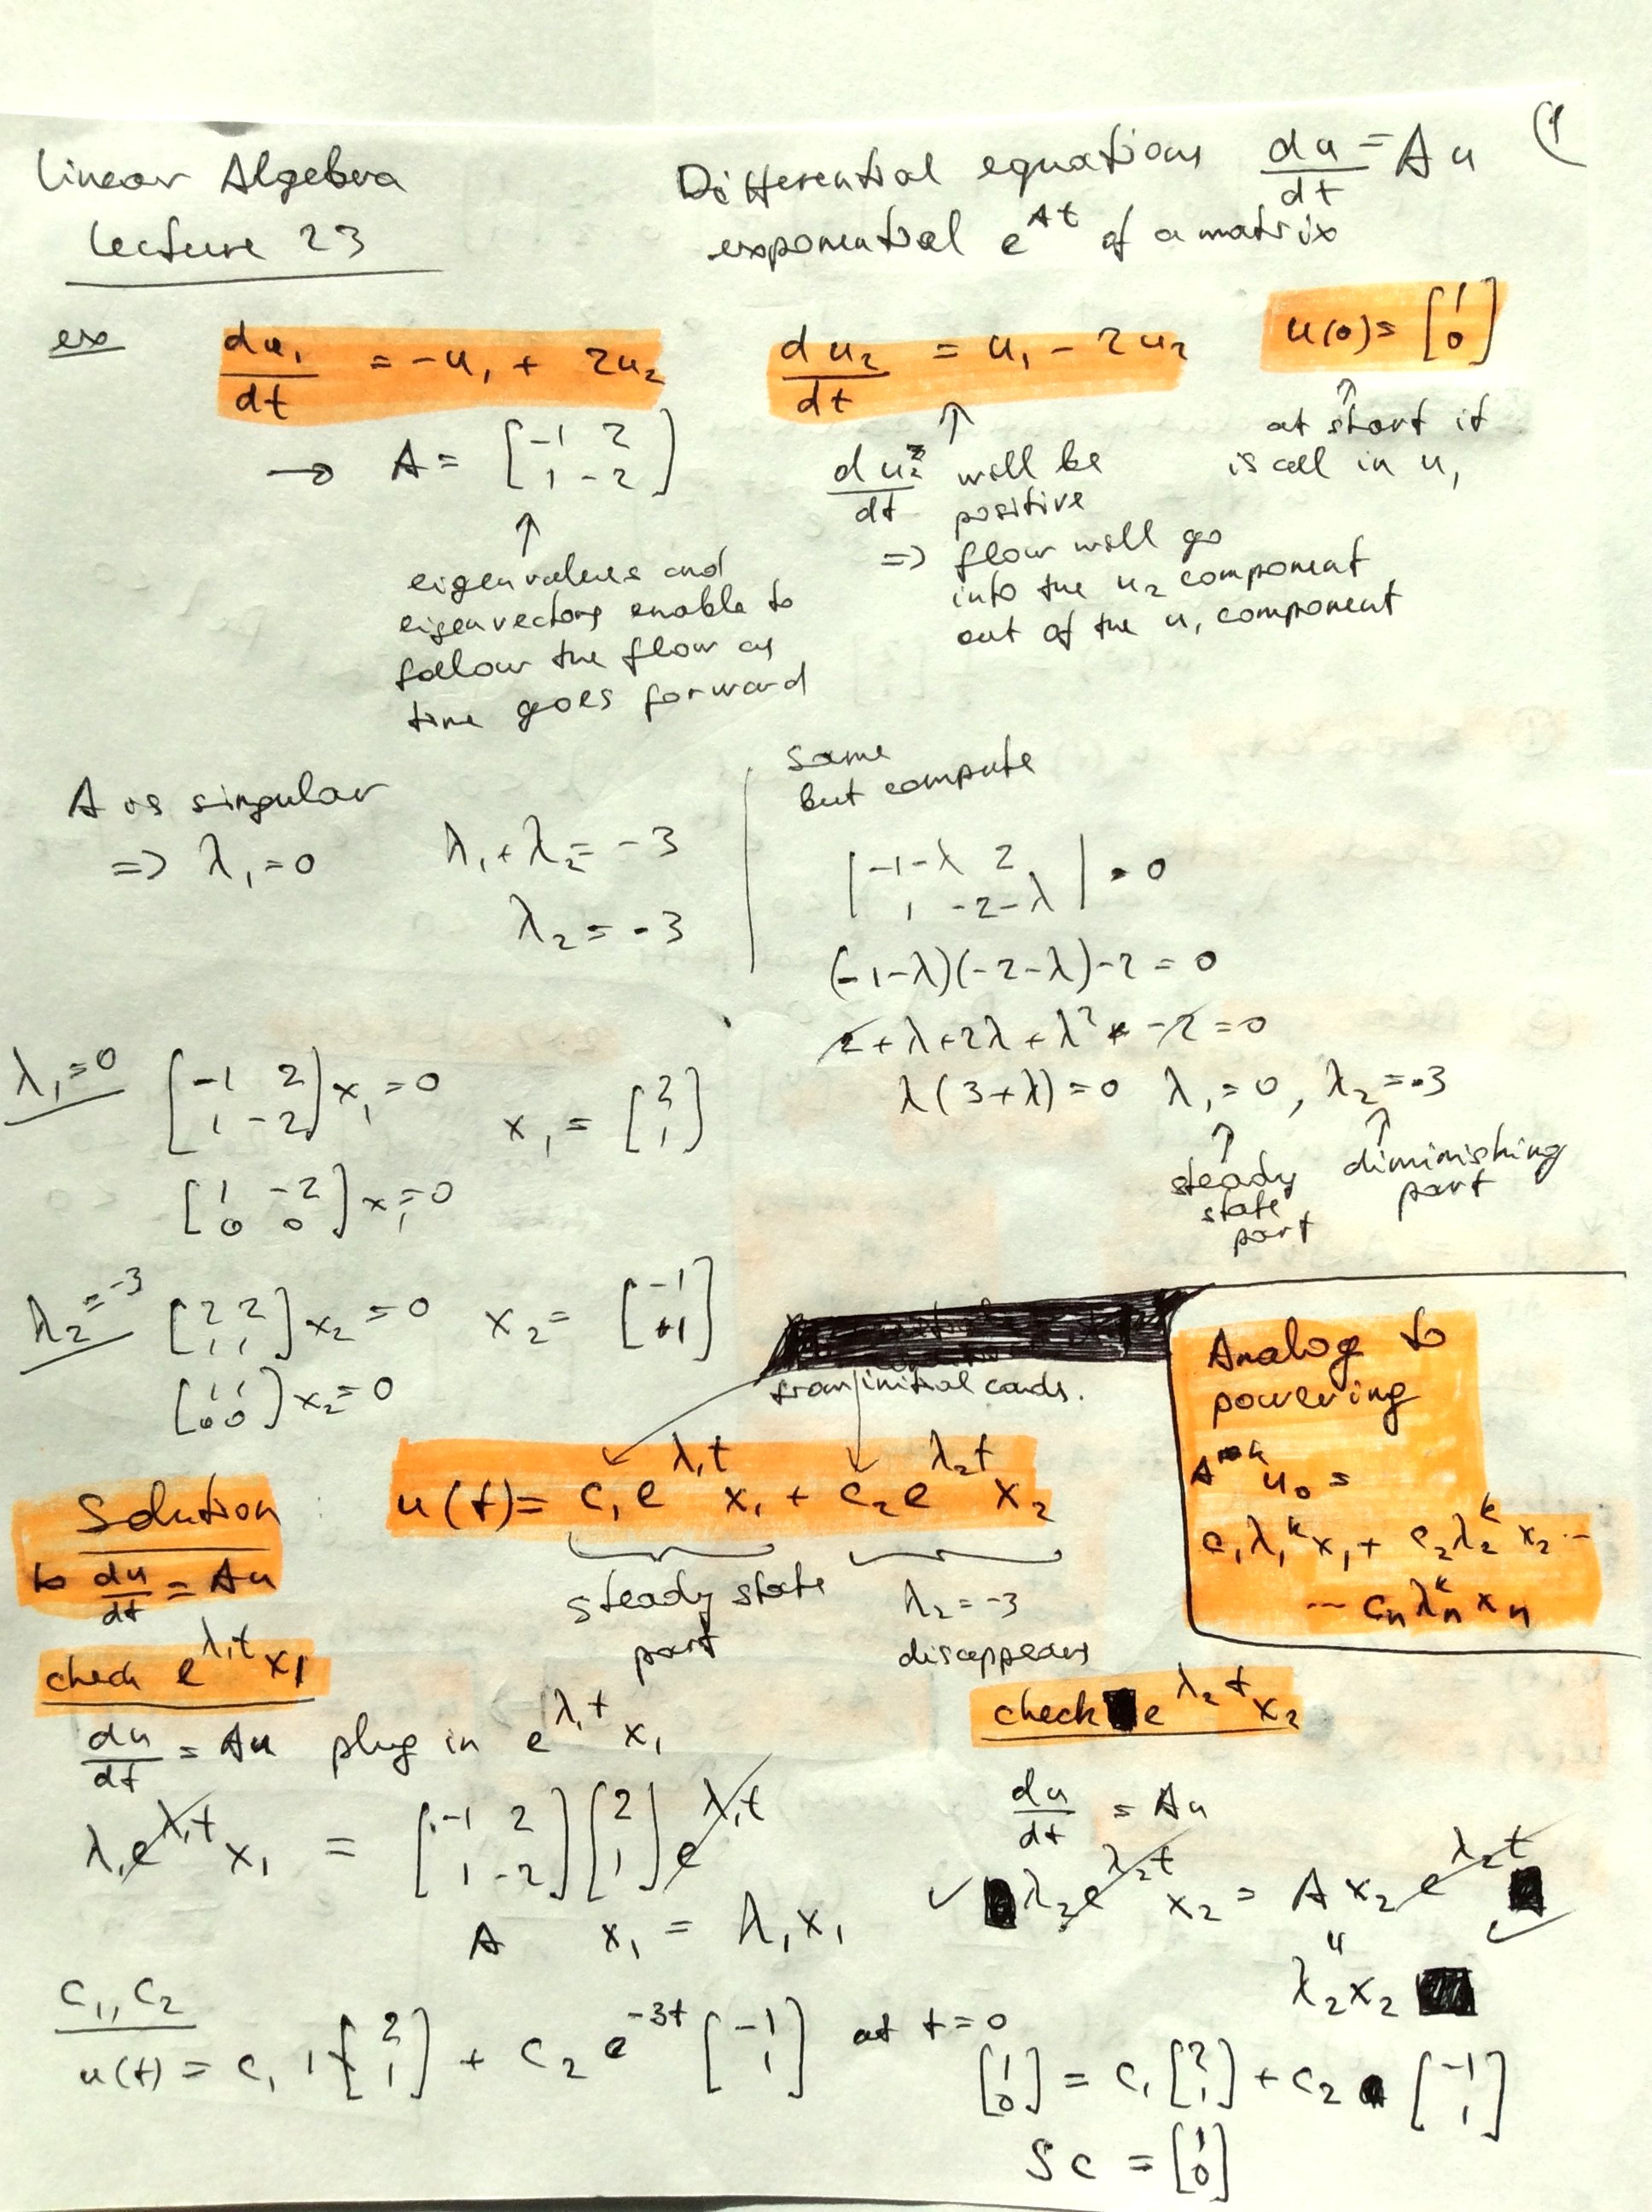 Linear Algebra
Lecture 23
Differential equations du/dt = Au
exponential e^At of a matrix
(1
ex
du₁/dt = -u₁ + 2u₂
du₂/dt = u₁ - 2u₂
u(0) = [1 0]
→ A = [-1 2; 1 -2]
↑
eigenvalues and
eigenvectors enable to
follow the flow as
time goes forward
↑
du₂/dt will be
positive
=> flow will go
into the u₂ component
out of the u₁ component
↑
at start it
is all in u₁
A is singular
=> λ₁ = 0
λ₁ + λ₂ = -3
λ₂ = -3
same
but compute
|-1-λ 2; 1 -2-λ| = 0
(-1-λ)(-2-λ)-2 = 0
2+λ+2λ+λ² -2 = 0
λ(3+λ) = 0 λ₁ = 0, λ₂ = -3
↑
steady
state
part
↑
diminishing
part
λ₁ = 0 [-1 2; 1 -2] x₁ = 0 x₁ = [2 1]
[1 -2; 0 0] x₁ = 0
λ₂ = -3 [2 2; 1 1] x₂ = 0 x₂ = [-1 +1]
[1 1; 0 0] x₂ = 0
from initial conds.
Analog to
powering
A^k u₀ =
c₁λ₁^k x₁ + c₂λ₂^k x₂ ...
... cₙλₙ^k xₙ
Solution
to du/dt = Au
u(t) = c₁e^λ₁t x₁ + c₂e^λ₂t x₂
steady state
part
λ₂ = -3
disappears
check e^λ₁t x₁
du/dt = Au plug in e^λ₁t x₁
λ₁e^λ₁t x₁ = [-1 2; 1 -2] [2 1] e^λ₁t
A x₁ = λ₁x₁
check e^λ₂t x₂
du/dt = Au
✓ λ₂e^λ₂t x₂ = A x₂ e^λ₂t ✓
"
λ₂x₂
c₁, c₂
u(t) = c₁ 1 [2 1] + c₂ e^-3t [-1 1] at t = 0
[1 0] = c₁ [2 1] + c₂ [-1 1]
S c = [1 0]